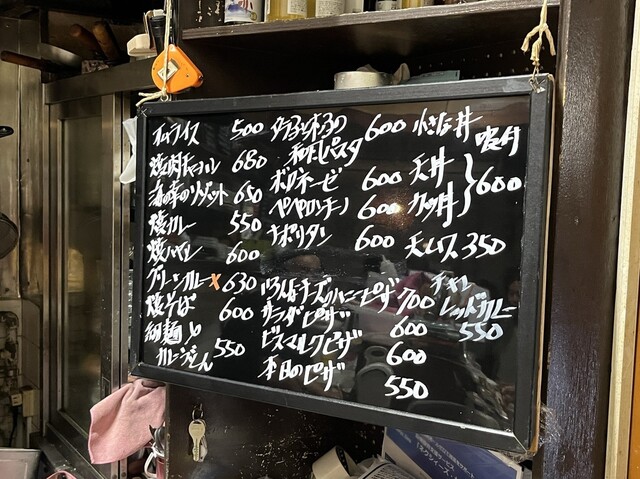 オムライス 500
焼肉チャーハン 680
海の幸のリゾット 650
焼カレー 550
焼ハヤシ 600
グリーンカレー 630
焼そば 600
細麺
カレーうどん 550
タラ子とキノコの
和風パスタ 600
ボロネーゼ 600
ペペロンチーノ 600
ナポリタン 600
いろんなチーズのハニーピザ 700
サラダピザ 600
ビスマルクピザ 600
本日のピザ 550
小さな丼 吸付
天丼
カツ丼
600
天ムス 350
チキン
レッドカレー
550